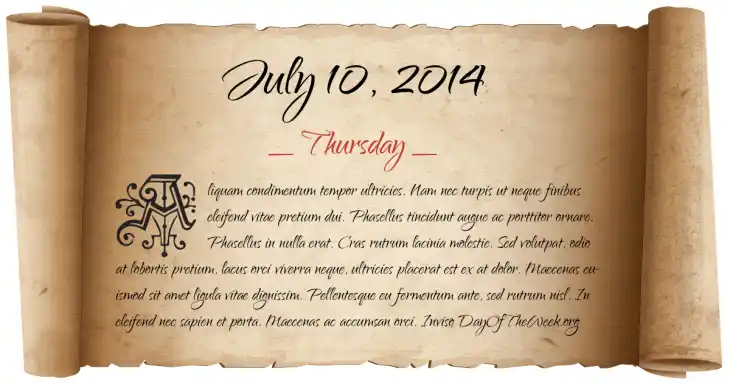 July 10, 2014
_ Thursday _
Aliquam condimentum tempor ultricies. Nam nec turpis ut neque finibus
eleifend vitae pretium dui. Phasellus tincidunt augue ac porttitor ornare.
Phasellus in nulla erat. Cras rutrum lacinia molestie. Sed volutpat, odio
at lobortis pretium, lacus orci viverra neque, ultricies placerat est ex at dolor. Maecenas eu-
ismod sit amet ligula vitae dignissim. Pellentesque eu fermentum ante, sed rutrum nisl. In
eleifend nec sapien et porta. Maecenas ac accumsan orci. Inviso DayOfTheWeek.org